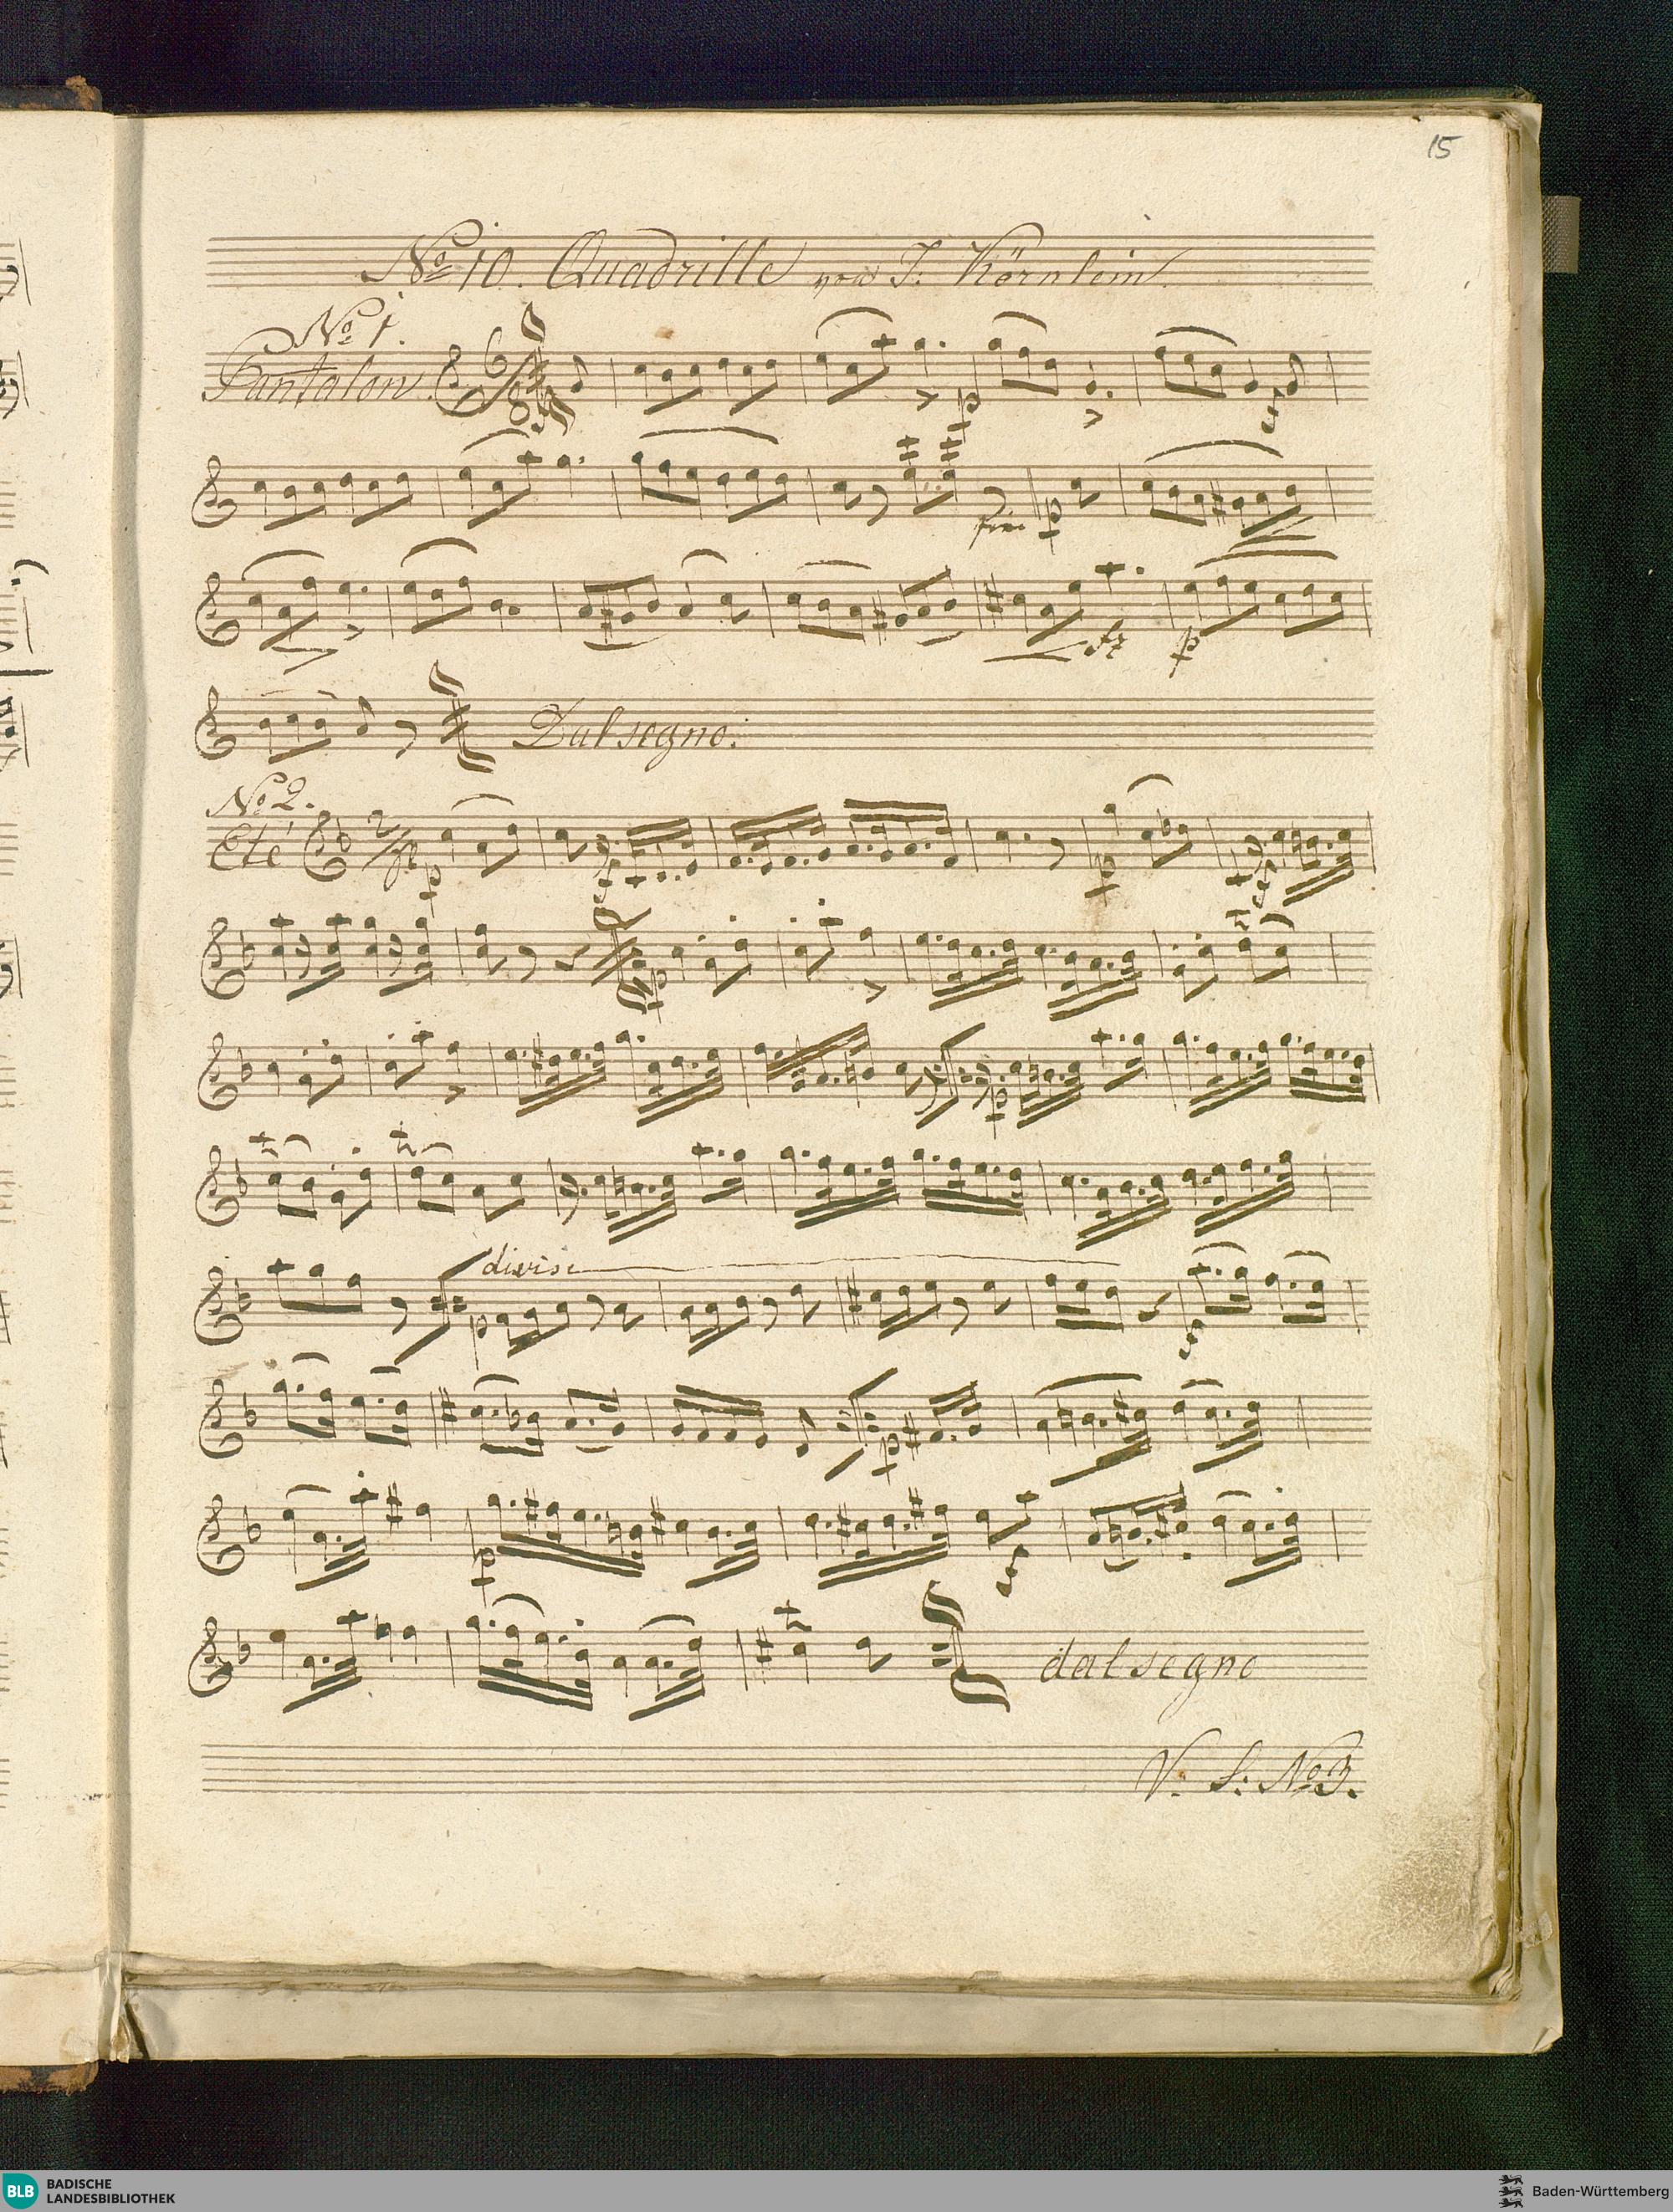 15
No 10. Quadrille von J. Körnlein.
No 1.
Pantalon.
6/8
p
fine
p
sf
p
Dal segno.
No 2.
Eté
2/4
p
p
p
p
divisi
p
p
p
dal segno
V. S. No 3.
BLB BADISCHE LANDESBIBLIOTHEK
Baden-Württemberg